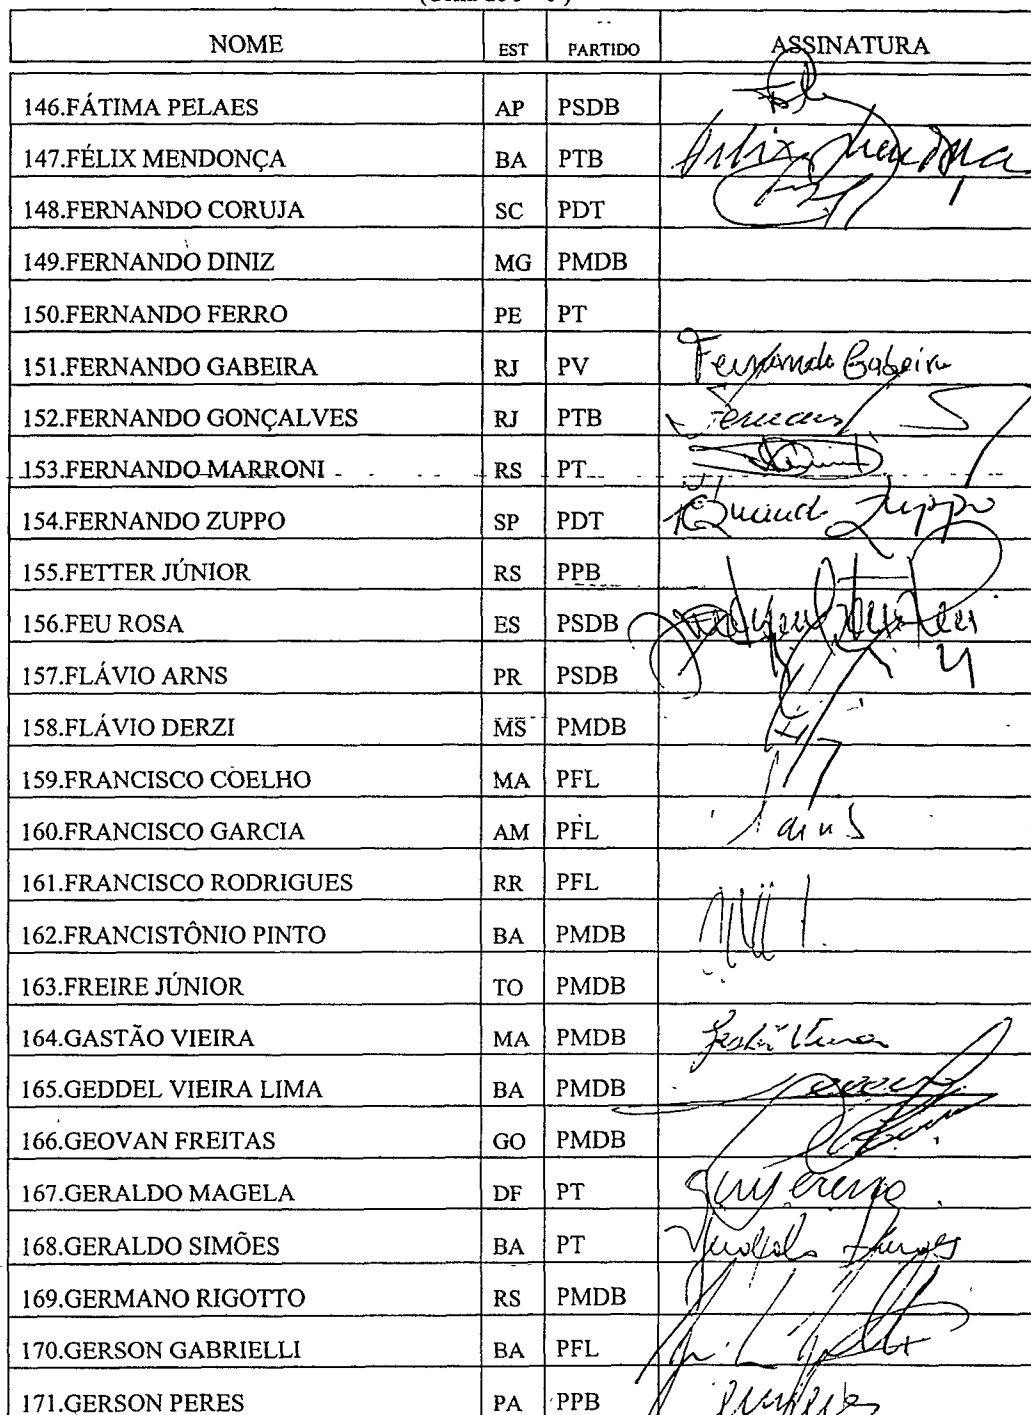 NOME EST PARTIDO ASSINATURA
146.FÁTIMA PELAES AP PSDB
147.FÉLIX MENDONÇA BA PTB Félix Mendonça
148.FERNANDO CORUJA SC PDT
149.FERNANDO DINIZ MG PMDB
150.FERNANDO FERRO PE PT
151.FERNANDO GABEIRA RJ PV Fernando Gabeira
152.FERNANDO GONÇALVES RJ PTB
153.FERNANDO MARRONI RS PT
154.FERNANDO ZUPPO SP PDT Fernando Zuppo
155.FETTER JÚNIOR RS PPB
156.FEU ROSA ES PSDB
157.FLÁVIO ARNS PR PSDB
158.FLÁVIO DERZI MS PMDB
159.FRANCISCO COELHO MA PFL
160.FRANCISCO GARCIA AM PFL
161.FRANCISCO RODRIGUES RR PFL
162.FRANCISTÔNIO PINTO BA PMDB
163.FREIRE JÚNIOR TO PMDB
164.GASTÃO VIEIRA MA PMDB Gastão Vieira
165.GEDDEL VIEIRA LIMA BA PMDB
166.GEOVAN FREITAS GO PMDB
167.GERALDO MAGELA DF PT
168.GERALDO SIMÕES BA PT Geraldo Simões
169.GERMANO RIGOTTO RS PMDB
170.GERSON GABRIELLI BA PFL
171.GERSON PERES PA PPB